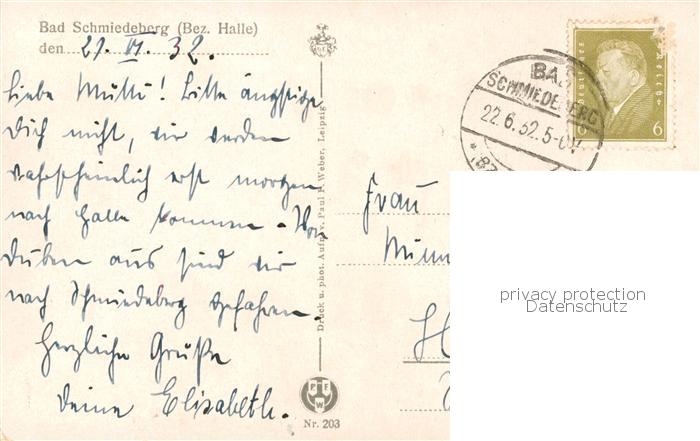 Bad Schmiedeberg (Bez. Halle)
den 21. VI. 32.
Liebe Mutti! Bitte ängstige
Dich nicht, wir werden
wahrscheinlich erst morgen
nach Halle kommen. Von
Düben aus sind wir
nach Schmiedeberg gefahren.
Herzliche Grüße
deine Elisabeth.
Druck u. phot. Aufn. v. Paul F. Weber, Leipzig
PFW
Nr. 203
Deutsches Reich
6 6
BAD
SCHMIEDEBERG
22.6.32.5-6V.
Frau
H
privacy protection
Datenschutz